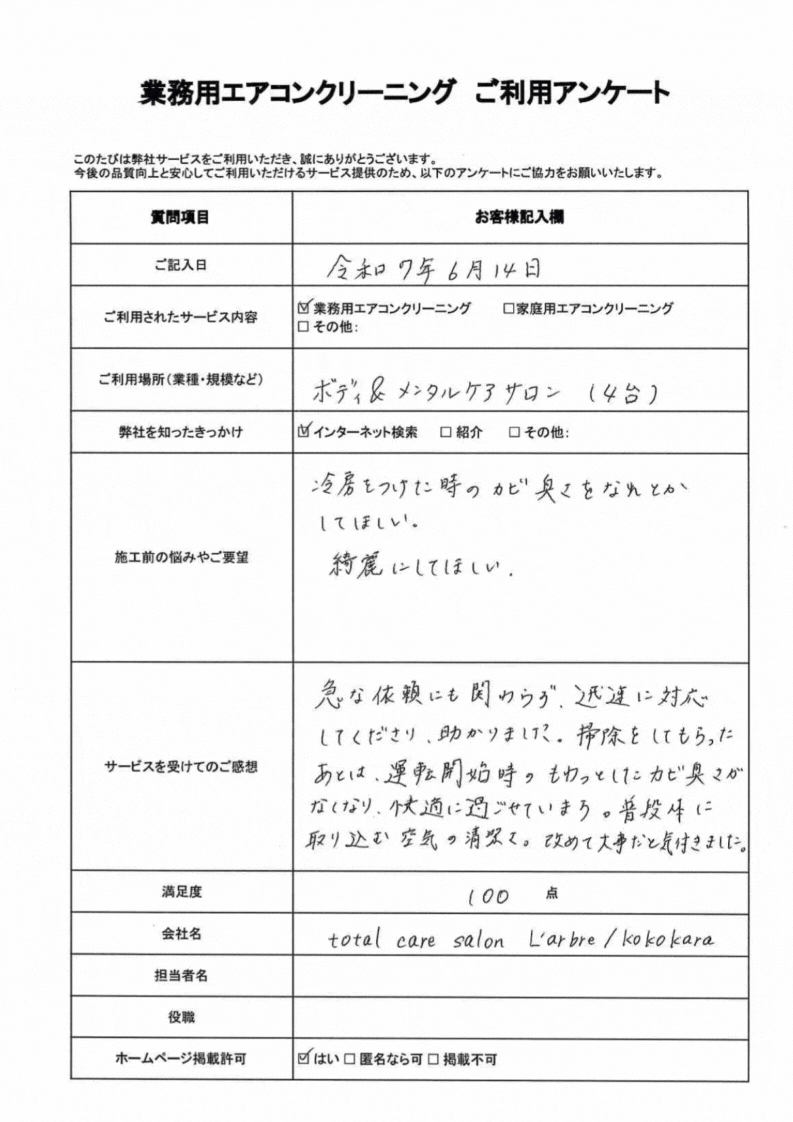 業務用エアコンクリーニング ご利用アンケート
このたびは弊社サービスをご利用いただき、誠にありがとうございます。
今後の品質向上と安心してご利用いただけるサービス提供のため、以下のアンケートにご協力をお願いいたします。
質問項目 お客様記入欄
ご記入日 令和7年6月14日
ご利用されたサービス内容 ☑業務用エアコンクリーニング ☐家庭用エアコンクリーニング
☐その他:
ご利用場所(業種・規模など) ボディ&メンタルケアサロン (4台)
弊社を知ったきっかけ ☑インターネット検索 ☐紹介 ☐その他:
施工前の悩みやご要望
冷房をつけた時のカビ臭さをなんとか
してほしい。
綺麗にしてほしい.
サービスを受けてのご感想
急な依頼にも関わらず、迅速に対応
してくださり、助かりました。掃除をしてもらった
あとは、運転開始時のもわっとしたカビ臭さが
なくなり、快適に過ごせています。普段体に
取り込む空気の清潔さ。改めて大事だと気付きました。
満足度 100 点
会社名 total care salon L'arbre/kokokara
担当者名
役職
ホームページ掲載許可 ☑はい ☐匿名なら可 ☐掲載不可